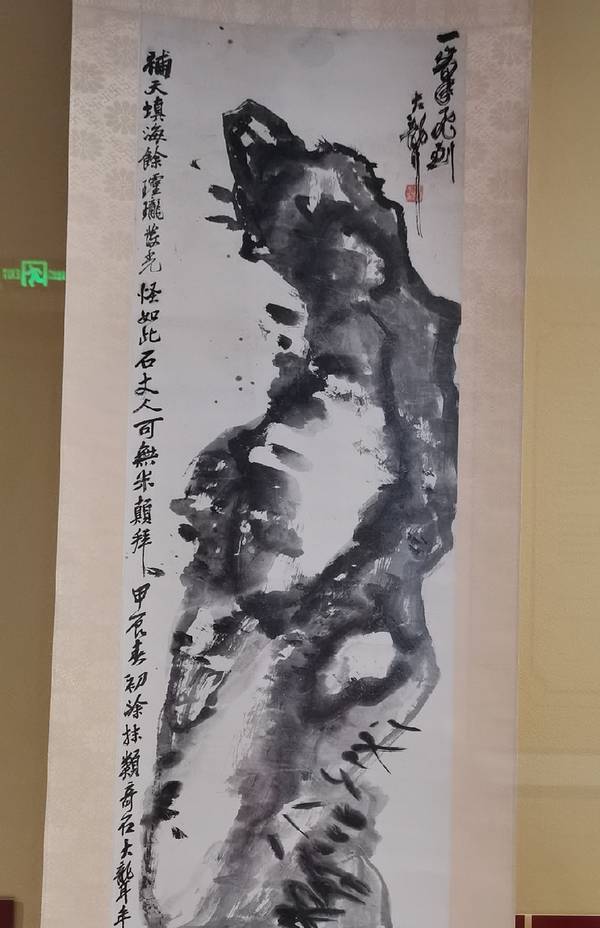 一峯飛到
大聾
補天填海餘瓏發光怪如此石丈人可無米顛拜 甲辰春初塗抹類奇石大聾年